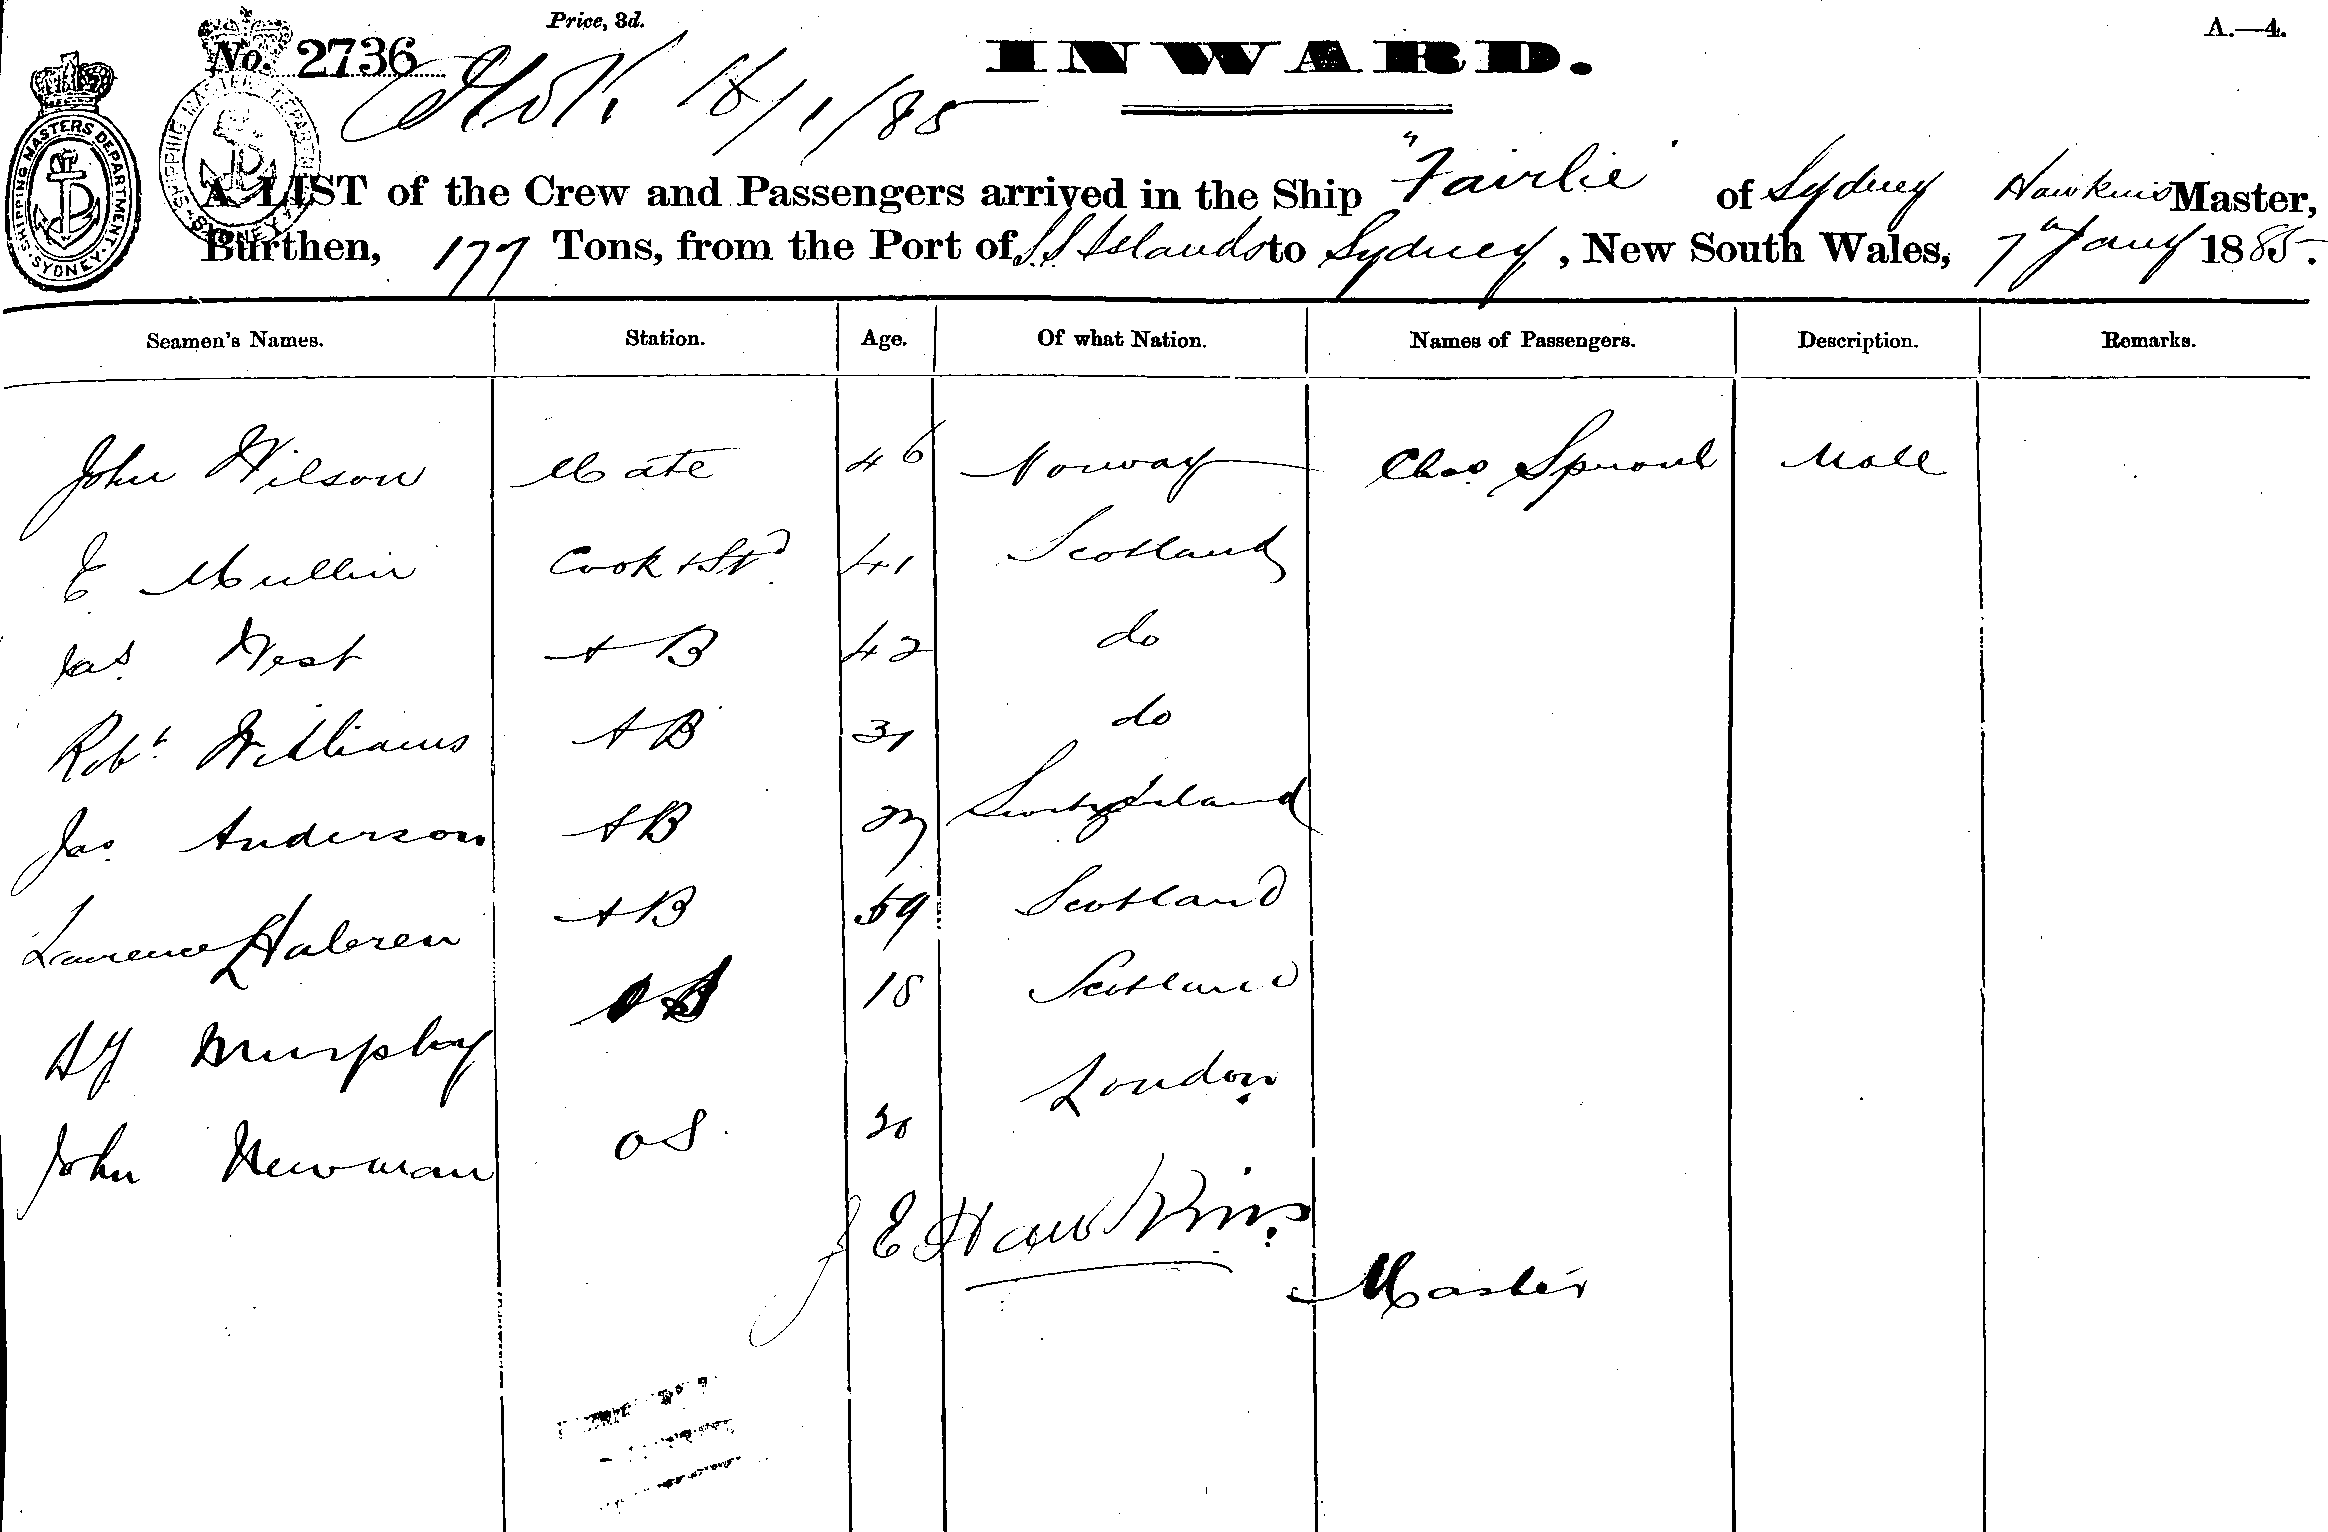 Price, 3d.
A.—4.
No. 2736
INWARD.
/1/85
SHIPPING MASTERS DEPARTMENT SYDNEY
SHIPPING MASTERS DEPARTMENT SYDNEY
A LIST of the Crew and Passengers arrived in the Ship "Fairlie" of Sydney Hawkins Master,
Burthen, 177 Tons, from the Port of S.S. Islands to Sydney, New South Wales, 7th Jany 1885.
Seamen's Names. Station. Age. Of what Nation. Names of Passengers. Description. Remarks.
John Wilson Mate 46 Norway Chas Sproul Male
E Mullin Cook & Std 41 Scotland
Jas West AB 42 do
Robt Williams AB 31 do
Jas Anderson AB Switzerland
Laurence AB 59 Scotland
Murphy 18 Scotland
John Newman OS 20 London
J E Hawkins
Master